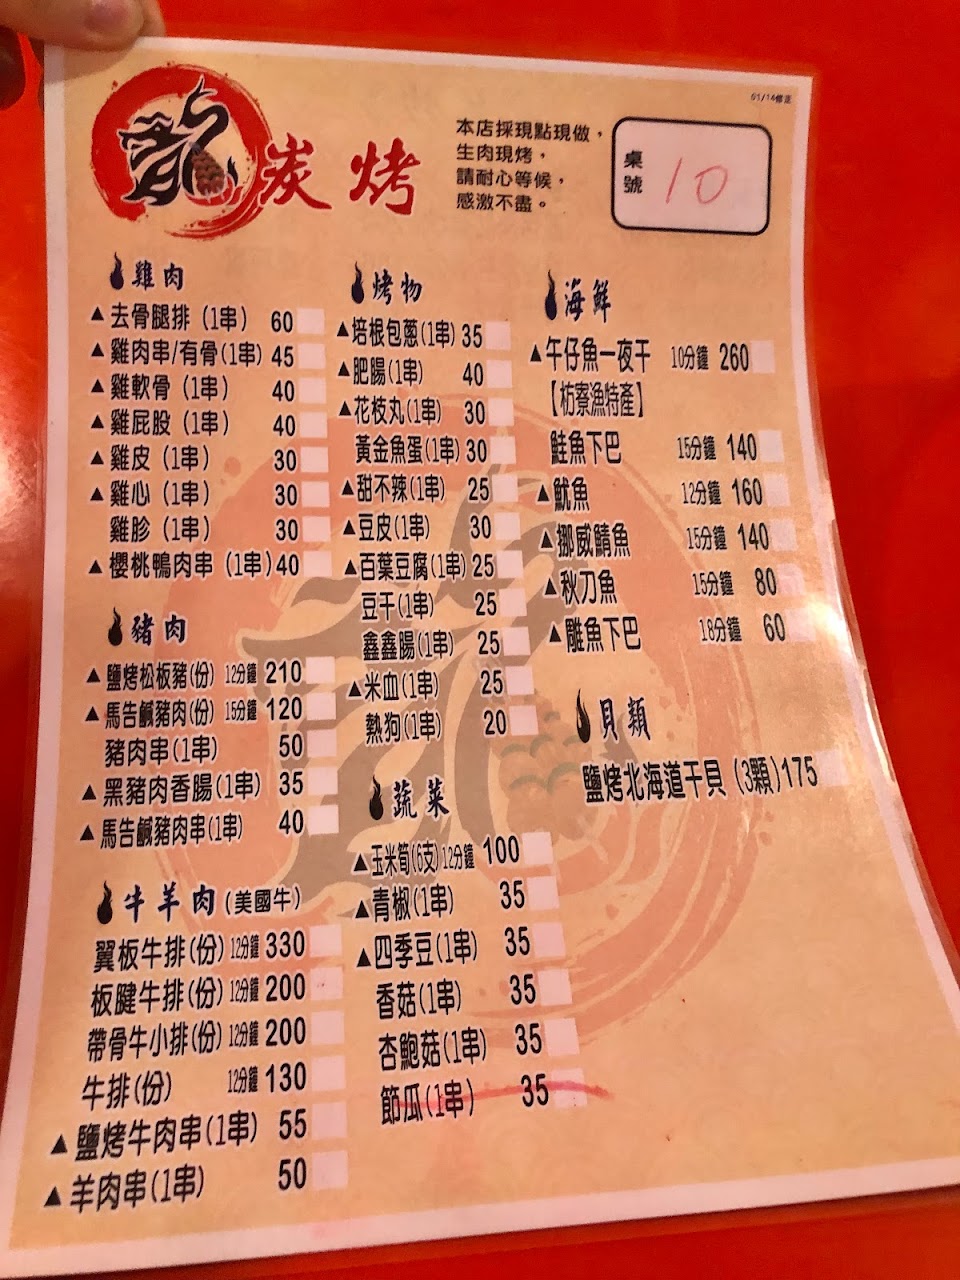 炭烤
本店採現點現做，
生肉現烤，
請耐心等候，
感激不盡。
01/14修正
桌號 10
雞肉
▲去骨腿排（1串） 60
▲雞肉串/有骨（1串） 45
▲雞軟骨（1串） 40
▲雞屁股（1串） 40
▲雞皮（1串） 30
▲雞心（1串） 30
雞胗（1串） 30
▲櫻桃鴨肉串（1串）40
豬肉
▲鹽烤松板豬(份) 12分鐘 210
▲馬告鹹豬肉(份) 15分鐘 120
豬肉串(1串) 50
▲黑豬肉香腸(1串) 35
▲馬告鹹豬肉串(1串) 40
牛羊肉(美國牛)
翼板牛排(份) 12分鐘 330
板腱牛排(份) 12分鐘 200
帶骨牛小排(份) 12分鐘 200
牛排(份) 12分鐘 130
▲鹽烤牛肉串(1串) 55
▲羊肉串(1串) 50
烤物
▲培根包蔥(1串) 35
▲肥腸(1串) 40
▲花枝丸(1串) 30
黃金魚蛋(1串) 30
▲甜不辣(1串) 25
▲豆皮(1串) 30
▲百葉豆腐(1串) 25
豆干(1串) 25
鑫鑫腸(1串) 25
▲米血(1串) 25
熱狗(1串) 20
蔬菜
▲玉米筍(6支) 12分鐘 100
▲青椒(1串) 35
▲四季豆(1串) 35
香菇(1串) 35
杏鮑菇(1串) 35
節瓜(1串) 35
海鮮
▲午仔魚一夜干 10分鐘 260
【枋寮漁特產】
鮭魚下巴 15分鐘 140
▲魷魚 12分鐘 160
▲挪威鯖魚 15分鐘 140
▲秋刀魚 15分鐘 80
▲雕魚下巴 18分鐘 60
貝類
鹽烤北海道干貝（3顆）175